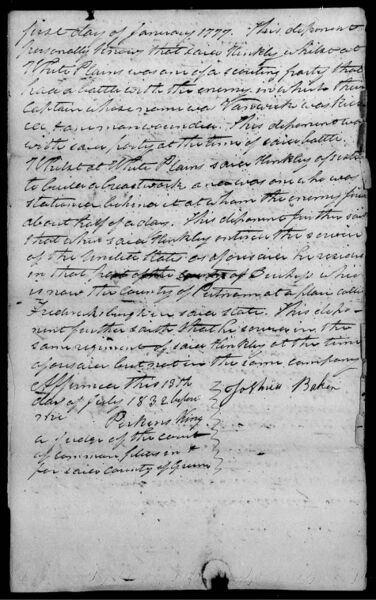 first day of January 1777. This deponent
personally knows that said Hinkley whilst at
White Plains was one of a scouting party that
had a battle with the enemy in which their
Captain whose name was Vanwick was kill
ed & a man wounded. This deponent was
with said party at the time of said battle.
Whilst at White Plains said Hinkley assisted
to build a breastwork and was one who was
stationed behind it at whom the enemy fired
about half of a day. This deponent further saith
that when said Hinkley entered the service
of the United States as aforesaid he resided
in that part of the county of Duchess which
is now the County of Putnam at a place called
Fredericksburgh in said state. This depo
nent further saith that he served in the
same regiment of said Hinkley at the time
aforesaid but not in the same company
Affirmed this 13th
day of July 1832 before
me
Joshua Baker
Perkins King
a Judge of the court
of common pleas in &
for said County of Greene